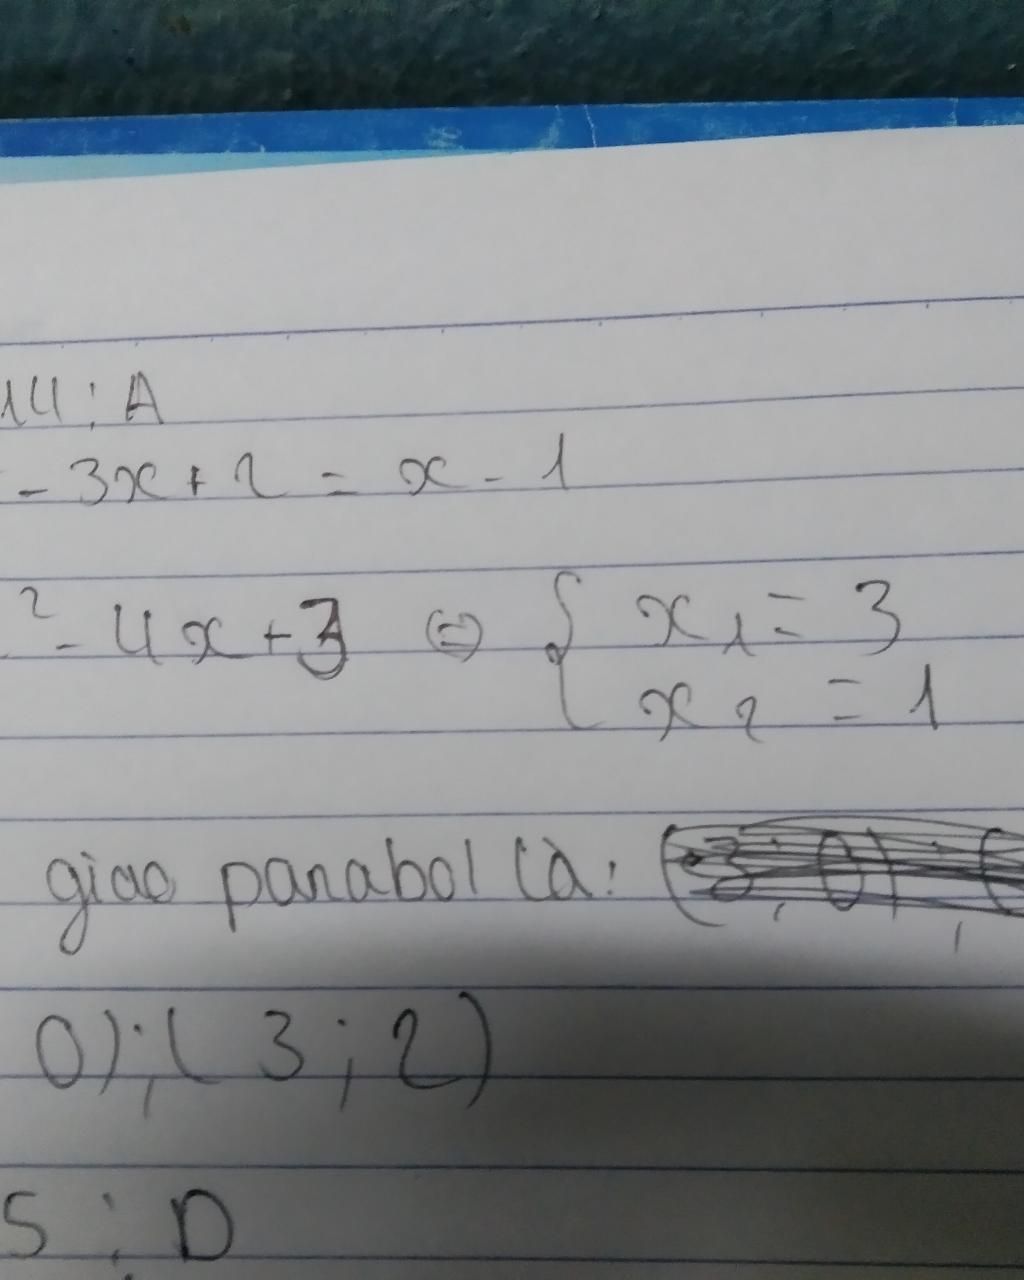 14 : A
- 3x + 2 = x - 1
² - 4x + 3 ⇔ { x₁ = 3
x₂ = 1
giao parabol là:
0) ; ( 3 ; 2 )
5 : D